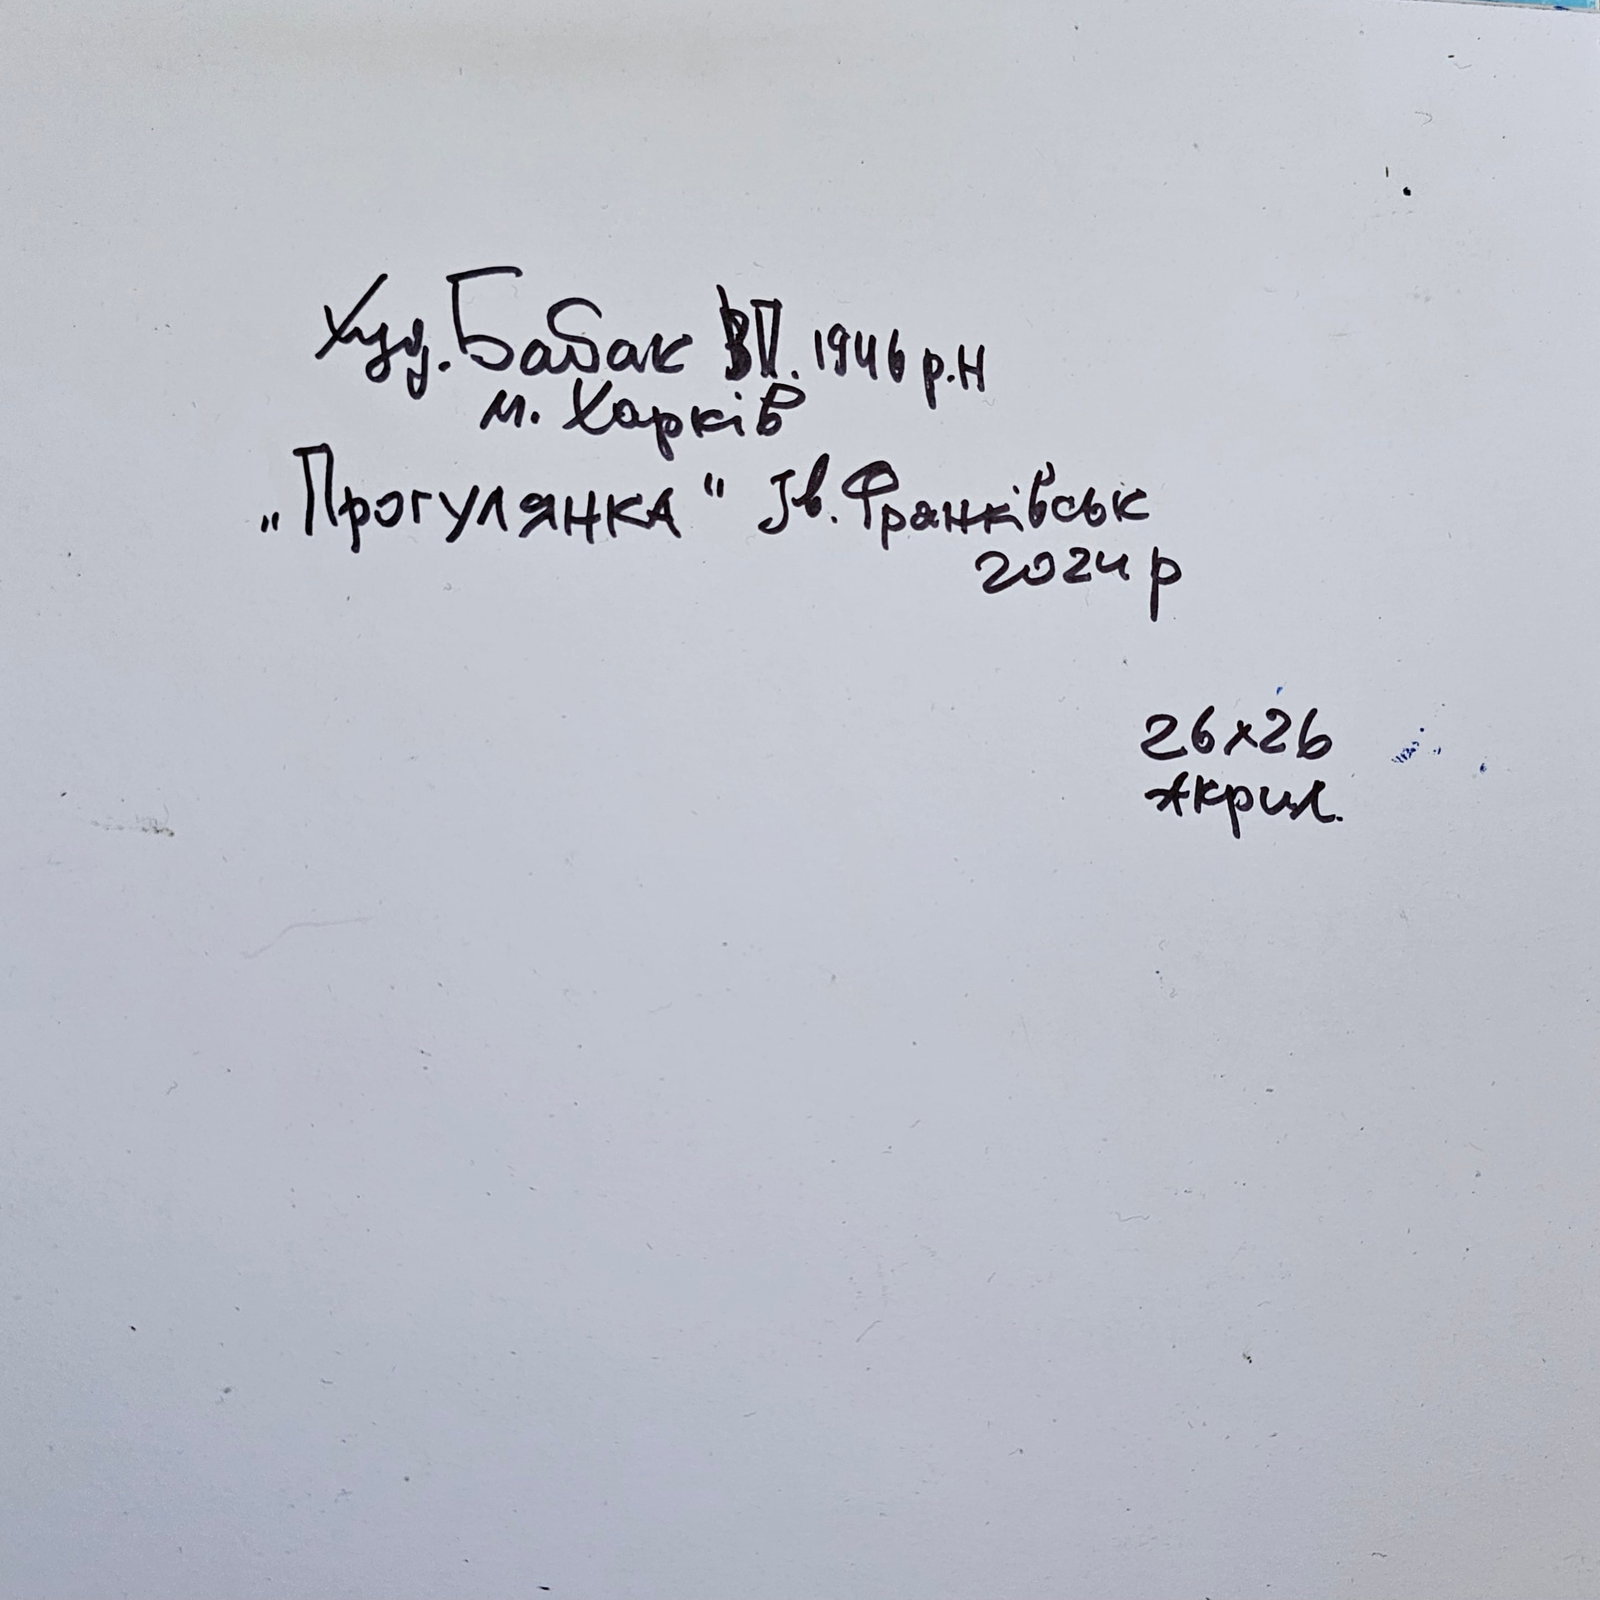 Худ. Бабак ВП. 1946 р.н
м. Харків
„Прогулянка" Ів. Франківськ
2024 р
26х26
Акрил.